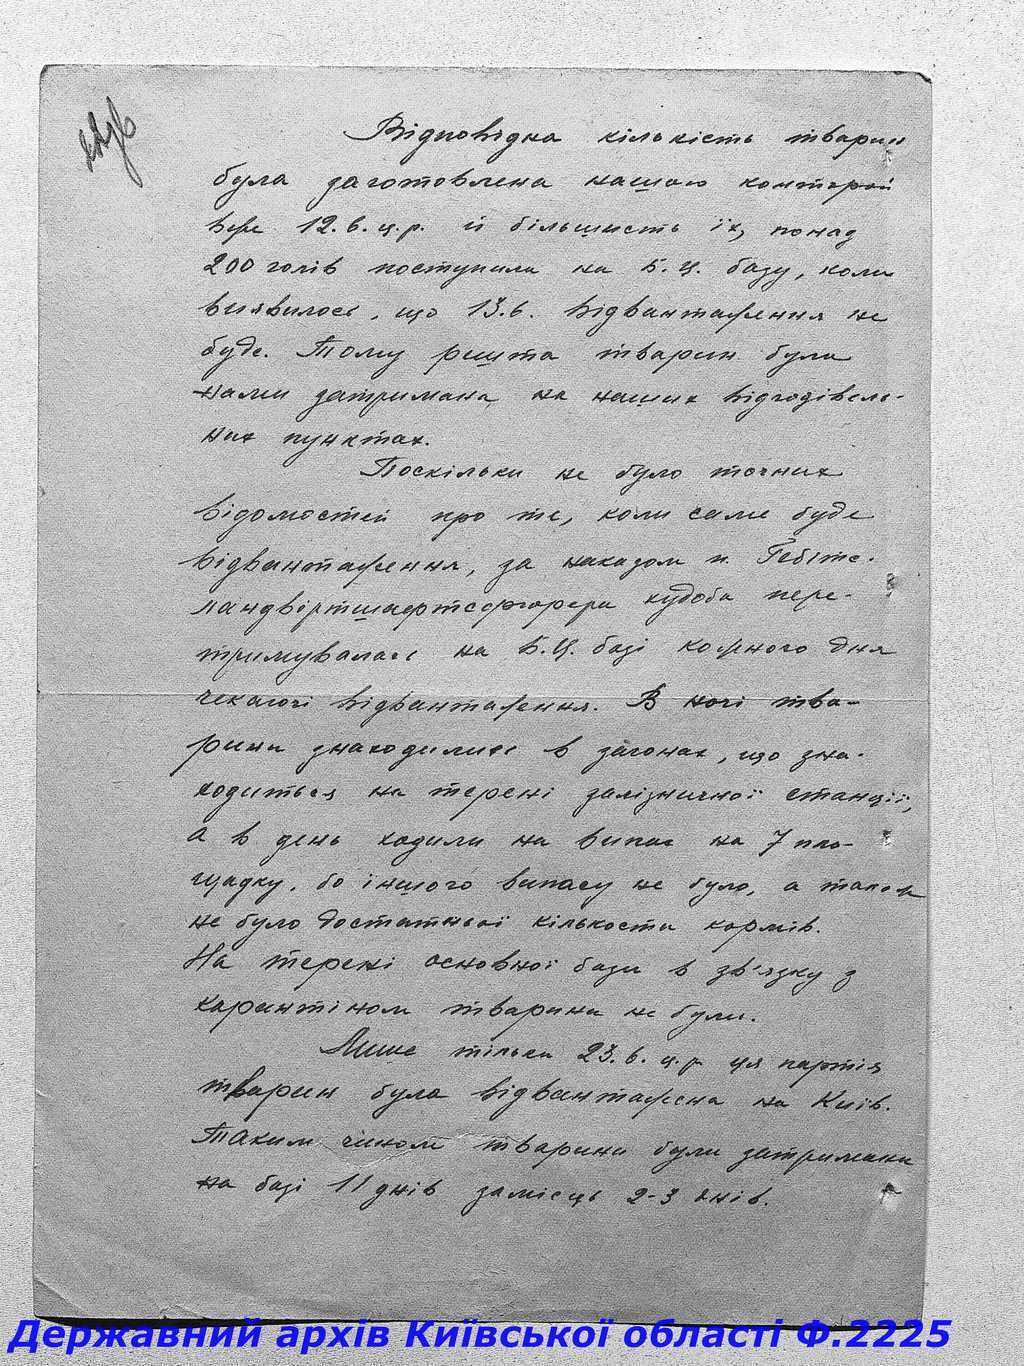 Відповідна кількість тварин
була заготовлена нашою конторой
вже 12.6. ц.р. й більшисть їх, понад
200 голів поступила на Б.Ц. базу, коли
виявилось, що 13.6. відвантаження не
буде. Тому решта тварин була
нами затримана на наших відгодівель-
них пунктах.
Поскільки не було точних
відомостей про те, коли саме буде
відвантаження, за наказом п. Гебітс-
ландвіртшафтсфюрера худоба пере-
тримувалась на Б.Ц. базі кожного дня
чекаючі відвантаження. В ночі тва-
рини знаходились в загонах, що зна-
ходиться на терені залізничної станції,
а в день ходили на випас на 7 пло-
щадку, бо іншого випасу не було, а також
не було достатньої кількости кормів.
На терені основної бази в зв'язку з
карантіном тварини не були.
Лише тільки 23.6. ц.р. ця партія
тварин була відвантажена на Київ.
Таким чином тварини були затримани
на базі 11 днів замісць 2-3 днів.
Державний архів Київської області Ф.2225